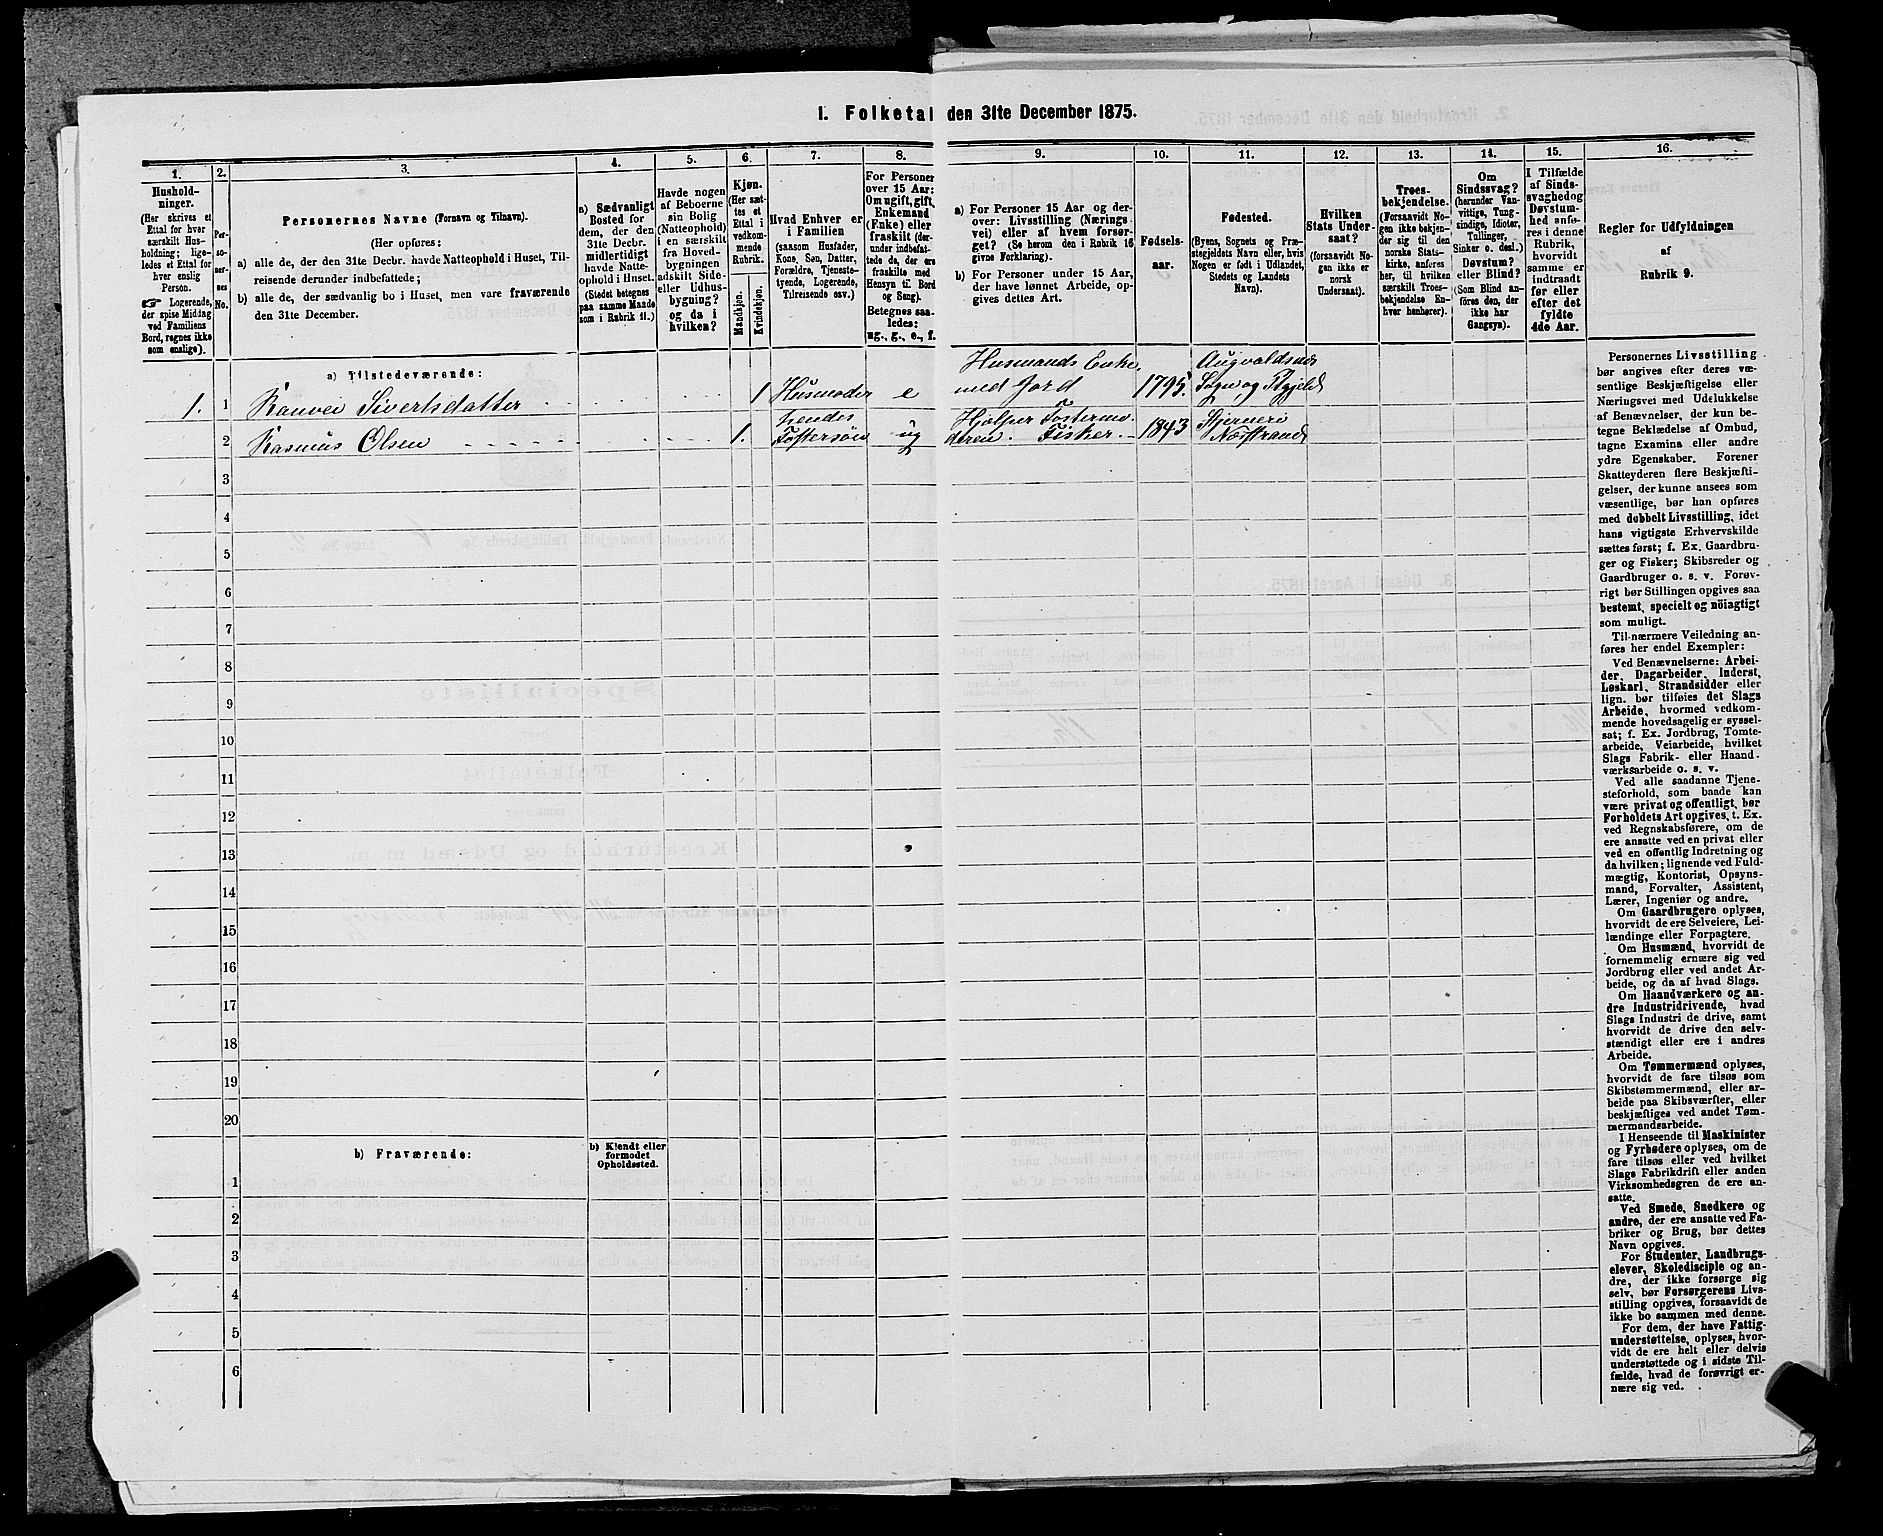 1. Folketal den 31te December 1875.
1.
Hushold-
ninger.
(Her skrives et
Ettal for hver
særskilt Hus-
holdning; lige-
ledes et Ettal for
hver enslig
Person.
☞ Logerende,
der spise Middag
ved Familiens
Bord, regnes ikke
som enslige).
2.
Per-
soner-
nes
No.
3.
Personernes Navne (Fornavn og Tilnavn).
(Her opføres:
a) alle de, der den 31te Decbr. havde Natteophold i Huset, Til-
reisende derunder indbefattede;
b) alle de, der sædvanlig bo i Huset, men vare fraværende
den 31te December.
4.
a) Sædvanligt
Bosted for
dem, der den
31te Decbr.
midlertidigt
havde Natte-
ophold i Huset.
(Stedet betegnes
paa samme Maade
som i Rubrik 11.)
5.
Havde nogen
af Beboerne
sin Bolig
(Natteophold)
i en særskilt
fra Hoved-
bygningen
adskilt Side-
eller Udhus-
bygning?
og da i
hvilken?
6.
Kjøn.
(Her sæt-
tes et
Ettal i
vedkom-
mende
Rubrik.
Mandkjøn.
Kvindekjøn.
7.
Hvad Enhver er
i Familien
(saasom Husfader,
Kone, Søn, Datter,
Forældre, Tjeneste-
tyende, Logerende,
Tilreisende osv.)
8.
For Personer
over 15 Aar:
Om ugift, gift,
Enkemand
(Enke) eller
fraskilt (der-
under indbefat-
tede de, der ere
fraskilte med
Hensyn til Bord
og Seng).
Betegnes saa-
ledes:
ug., g., e., f.
9.
a) For Personer 15 Aar og der-
over: Livsstilling (Nærings-
vei) eller af hvem forsør-
get? (Se herom den i Rubrik 16
givne Forklaring).
b) For Personer under 15 Aar,
der have lønnet Arbeide, op-
gives dettes Art.
10.
Fødsels-
aar.
11.
Fødested.
(Byens, Sognets og Præ-
stegjeldets Navn eller, hvis
Nogen er født i Udlandet,
Stedets og Landets
Navn).
12.
Hvilken
Stats Under-
saat?
(forsaavidt No-
gen ikke er
norsk
Undersaat).
13.
Troes-
bekjendelse.
(Forsaavidt No-
gen ikke bekjen-
der sig til den
norske Stats-
kirke, anføres
her, til hvilken
særskilt Troes-
bekjendelse En-
hver henhører).
14.
Om
Sindssvag?
(herunder Van-
vittige, Tung-
sindige, Idioter,
Tullinger,
Sinker o. desl.).
Døvstum?
eller Blind?
(Som Blind an-
føres den, der
ikke har
Gangsyn).
15.
I Tilfælde
af Sinds-
svaghed og
Døvstum-
hed anfø-
res i denne
Rubrik,
hvorvidt
samme er
indtraadt
før eller
efter det
fyldte
4de Aar.
16.
Regler for Udfyldningen
af
Rubrik 9.
a) Tilstedeværende:
Husmands Enke,
Augvaldsnæs
1. 1 Ranvei Sivertsdatter 1 Husmoder e med Jord 1795. Sogn, og Pgjeld
hendes Hjælper Fostermo Stjernerø
2 Rasmus Olsen 1. Fostersøn ug deren. Fisker. 1843 Næstrand
3
4
5
6
7
8
9
10
11
12
13
14
15
16
17
18
19
20
b) Fraværende:
b) Kjendt eller
formodet
Opholdssted.
1
2
3
4
5
6
Personernes Livsstilling
bør angives efter deres væ-
sentlige Beskjæftigelse eller
Næringsvei med Udelukkelse
af Benævnelser, der kun be-
tegne Beklædelse af Ombud,
tagne Examina eller andre
ydre Egenskaber. Forener
Skatteyderen flere Beskjæfti-
gelser, der kunne ansees som
væsentlige, bør han opføres
med dobbelt Livsstilling, idet
hans vigtigste Erhvervskilde
sættes først; f. Ex. Gaardbru-
ger og Fisker; Skibsreder og
Gaardbruger o. s. v. Forøv-
rigt bør Stillingen opgives saa
bestemt, specielt og nöiagtigt
som muligt.
Til nærmere Veiledning an-
føres her endel Exempler:
Ved Benævnelserne: Arbei-
der, Dagarbeider, Inderst,
Løskarl, Strandsidder eller
lign. bør tilføies det Slags
Arbeide, hvormed vedkom-
mende hovedsagelig er syssel-
sat; f. Ex. Jordbrug, Tomte-
arbeide, Veiarbeide, hvilket
Slags Fabrik- eller Haand-
værksarbeide o. s. v.
Ved alle saadanne Tjene-
steforhold, som baade kan
være privat og offentligt, bør
Forholdets Art opgives, t. Ex.
ved Regnskabsførere, om de
ere ansatte ved en privat eller
ved en offentlig Indretning og
da hvilken; lignende ved Fuld-
mægtig, Kontorist, Opsyns-
mand, Forvalter, Assistent,
Lærer, Ingeniør og andre.
Om Gaardbrugere oplyses,
hvorvidt de ere Selveiere, Lei-
lændinge eller Forpagtere.
Om Husmænd, hvorvidt de
fornemmelig ernære sig ved
Jordbrug eller ved andet Ar-
beide, og da af hvad Slags.
Om Haandværkere og an-
dre Industridrivende, hvad
Slags Industri de drive, samt
hvorvidt de drive den selv-
stændigt eller ere i andres
Arbeide.
Om Tømmermænd oplyses,
hvorvidt de fare tilsøs som
Skibstømmermænd, eller ar-
beide paa Skibsværfter, eller
beskjæftiges ved andet Tøm-
mermandsarbeide.
I Henseende til Maskinister
og Fyrbødere oplyses, om de
fare tilsøs eller ved hvilket
Slags Fabrikdrift eller anden
Virksomhedsgren de ere an-
satte.
Ved Smede, Snedkere og
andre, der ere ansatte ved Fa-
briker og Brug, bør dettes
Navn opgives.
For Studenter, Landbrugs-
elever, Skoledisciple og an-
dre, der ikke forsørge sig
selv, bør Forsørgerens Livs-
stilling opgives, forsaavidt de
ikke bo sammen med denne.
For dem, der have Fattig-
understøttelse, oplyses, hvor-
vidt de ere helt eller delvis
understøttede og i sidste Til-
fælde, hvad de forøvrigt er-
nære sig ved.